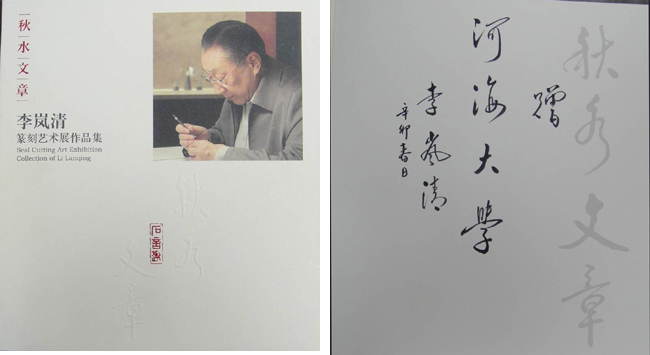 秋水文章
李岚清
篆刻艺术展作品集
Seal Cutting Art Exhibition
Collection of Li Lanqing
秋水
文章
秋水文章
赠
河海大学
李岚清
辛卯春日